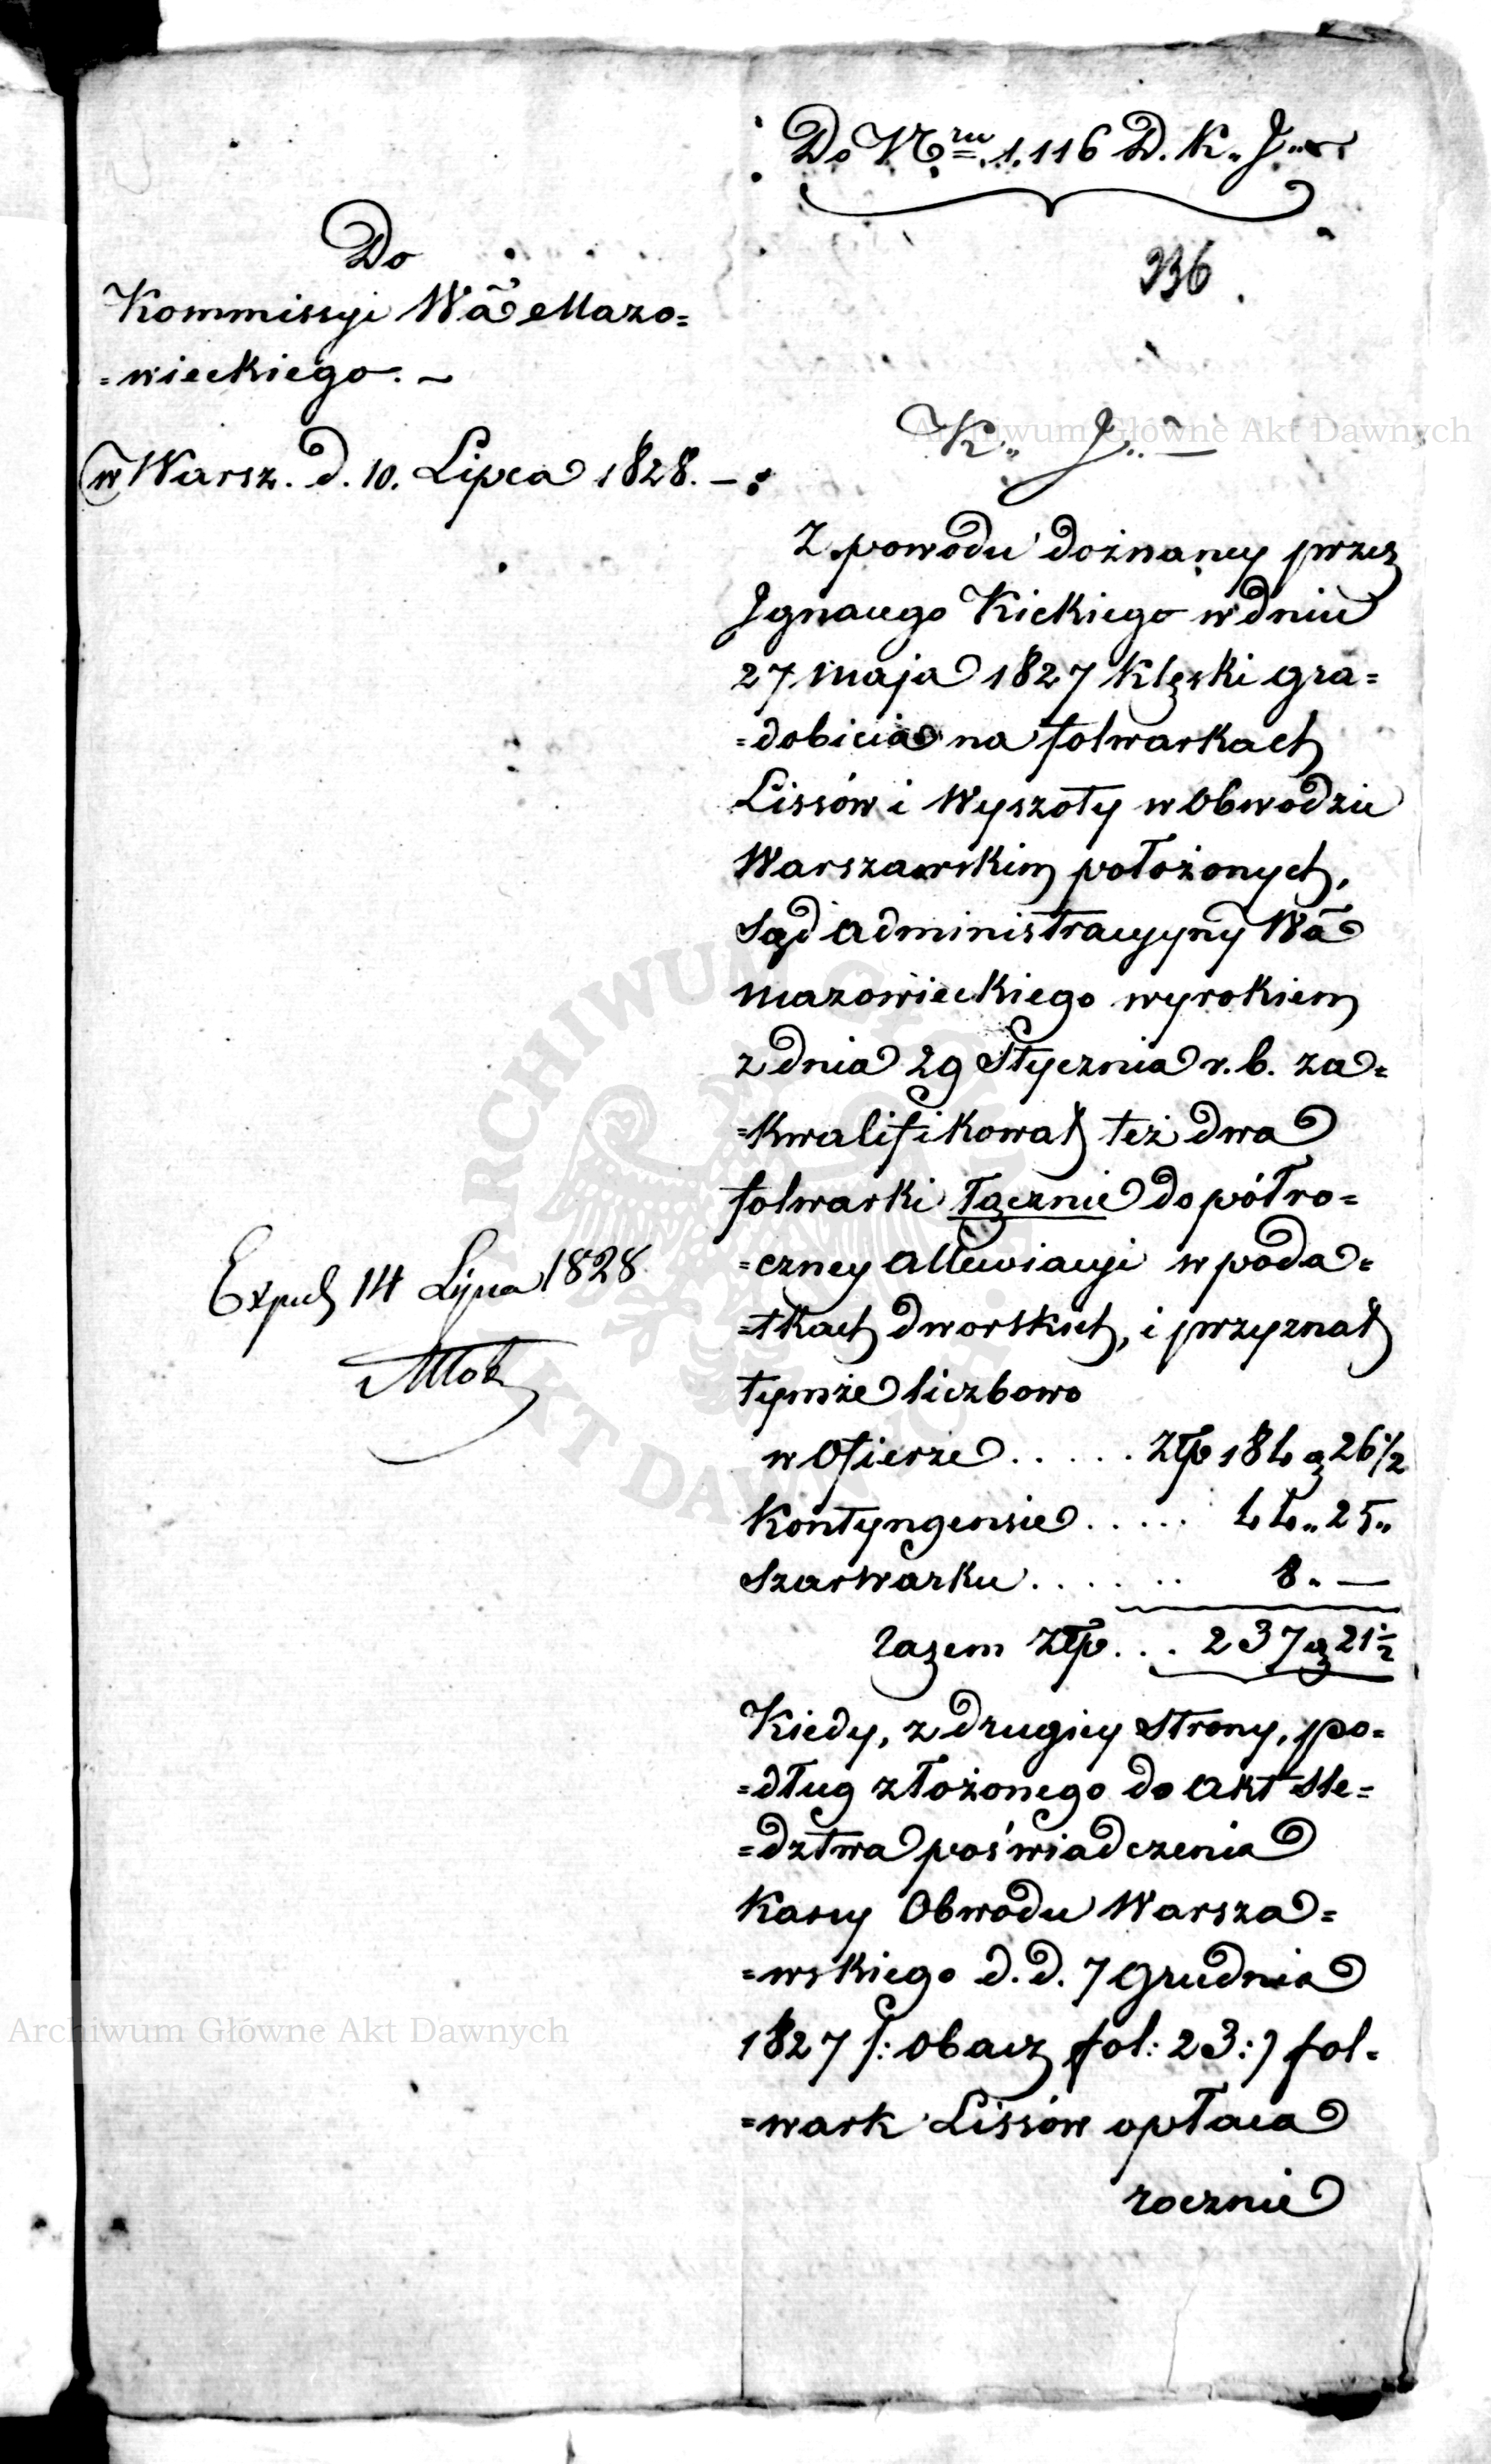 Do Nru 1.116 D. K. J.
936.
Do
Kommissyi Wa Mazo=
=wieckiego. –
w Warsz. d. 10. Lipca 1828. –
K. J. –
Z powodu doznaney przez
Ignacego Kickiego w dniu
27 maja 1827 klęski gra=
=dobicia na folwarkach
Lissów i Wyszoty w Obwodzie
Warszawskim położonych,
Sąd administracyiny Wa
mazowieckiego wyrokiem
z dnia 29 Stycznia r. b. za=
=kwalifikował też dwa
folwarki łącznie do półro=
=czney allewiacyi w poda=
=tkach dworskich, i przyznał
tymże liczbowo
w Ofierze . . . . . . Złp 184 g 26 1/2
Kontyngensie . . . . . 44 „ 25 „
Szarwarku . . . . . . . 8. —
Razem Złp . . . 237 g 21 1/2
Kiedy, z drugiey strony, po=
=dług złożonego do akt śle=
=dztwa poświadczenia
Kassy Obwodu Warsza=
=wskiego d. d. 7 Grudnia
1827 /: obacz fol: 23 :/ fol=
=wark Lissów opłaca
rocznie
Exped 14 Lipca 1828
Archiwum Główne Akt Dawnych
ARCHIWUM GŁÓWNE AKT DAWNYCH
Archiwum Główne Akt Dawnych